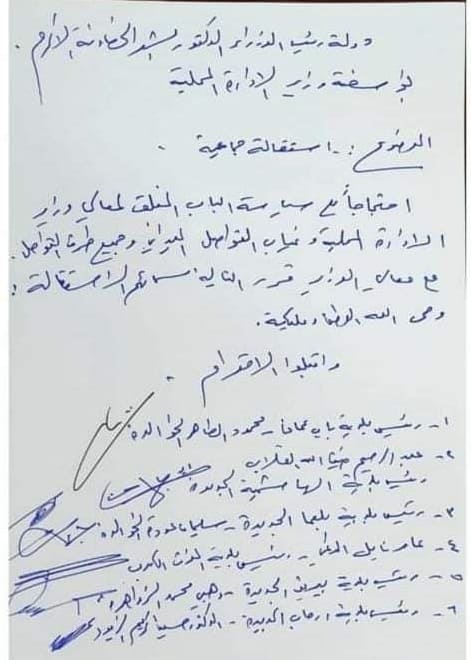 دولة رئيس الوزراء الدكتور بشر الخصاونة الاكرم.
بواسطة وزير الادارة المحلية
الموضوع :- استقالة جماعية .
احتجاجاً على سياسة الباب المغلق لمعالي وزير
الادارة المحلية وغياب التواصل الميداني وجميع طرق التواصل.
مع معالي الوزير قرر التالية اسمائهم الاستقالة :
وحمى الله الوطن ومليكه.
واقبلوا الاحترام .
١- رئيس بلدية باب عمان - محمود الطاهر الخوالده
٢- عبد الرحيم ضيف الله
رئيس بلدية الهاشمية الجديدة
٣- رئيس بلدية بلعما الجديدة - سليمان عودة الخوالده
٤- عامر نايل - رئيس بلدية
٥- رئيس بلدية بيرين الجديدة - محمد الزواهرة
٦- رئيس بلدية رحاب الجديدة - الدكتور